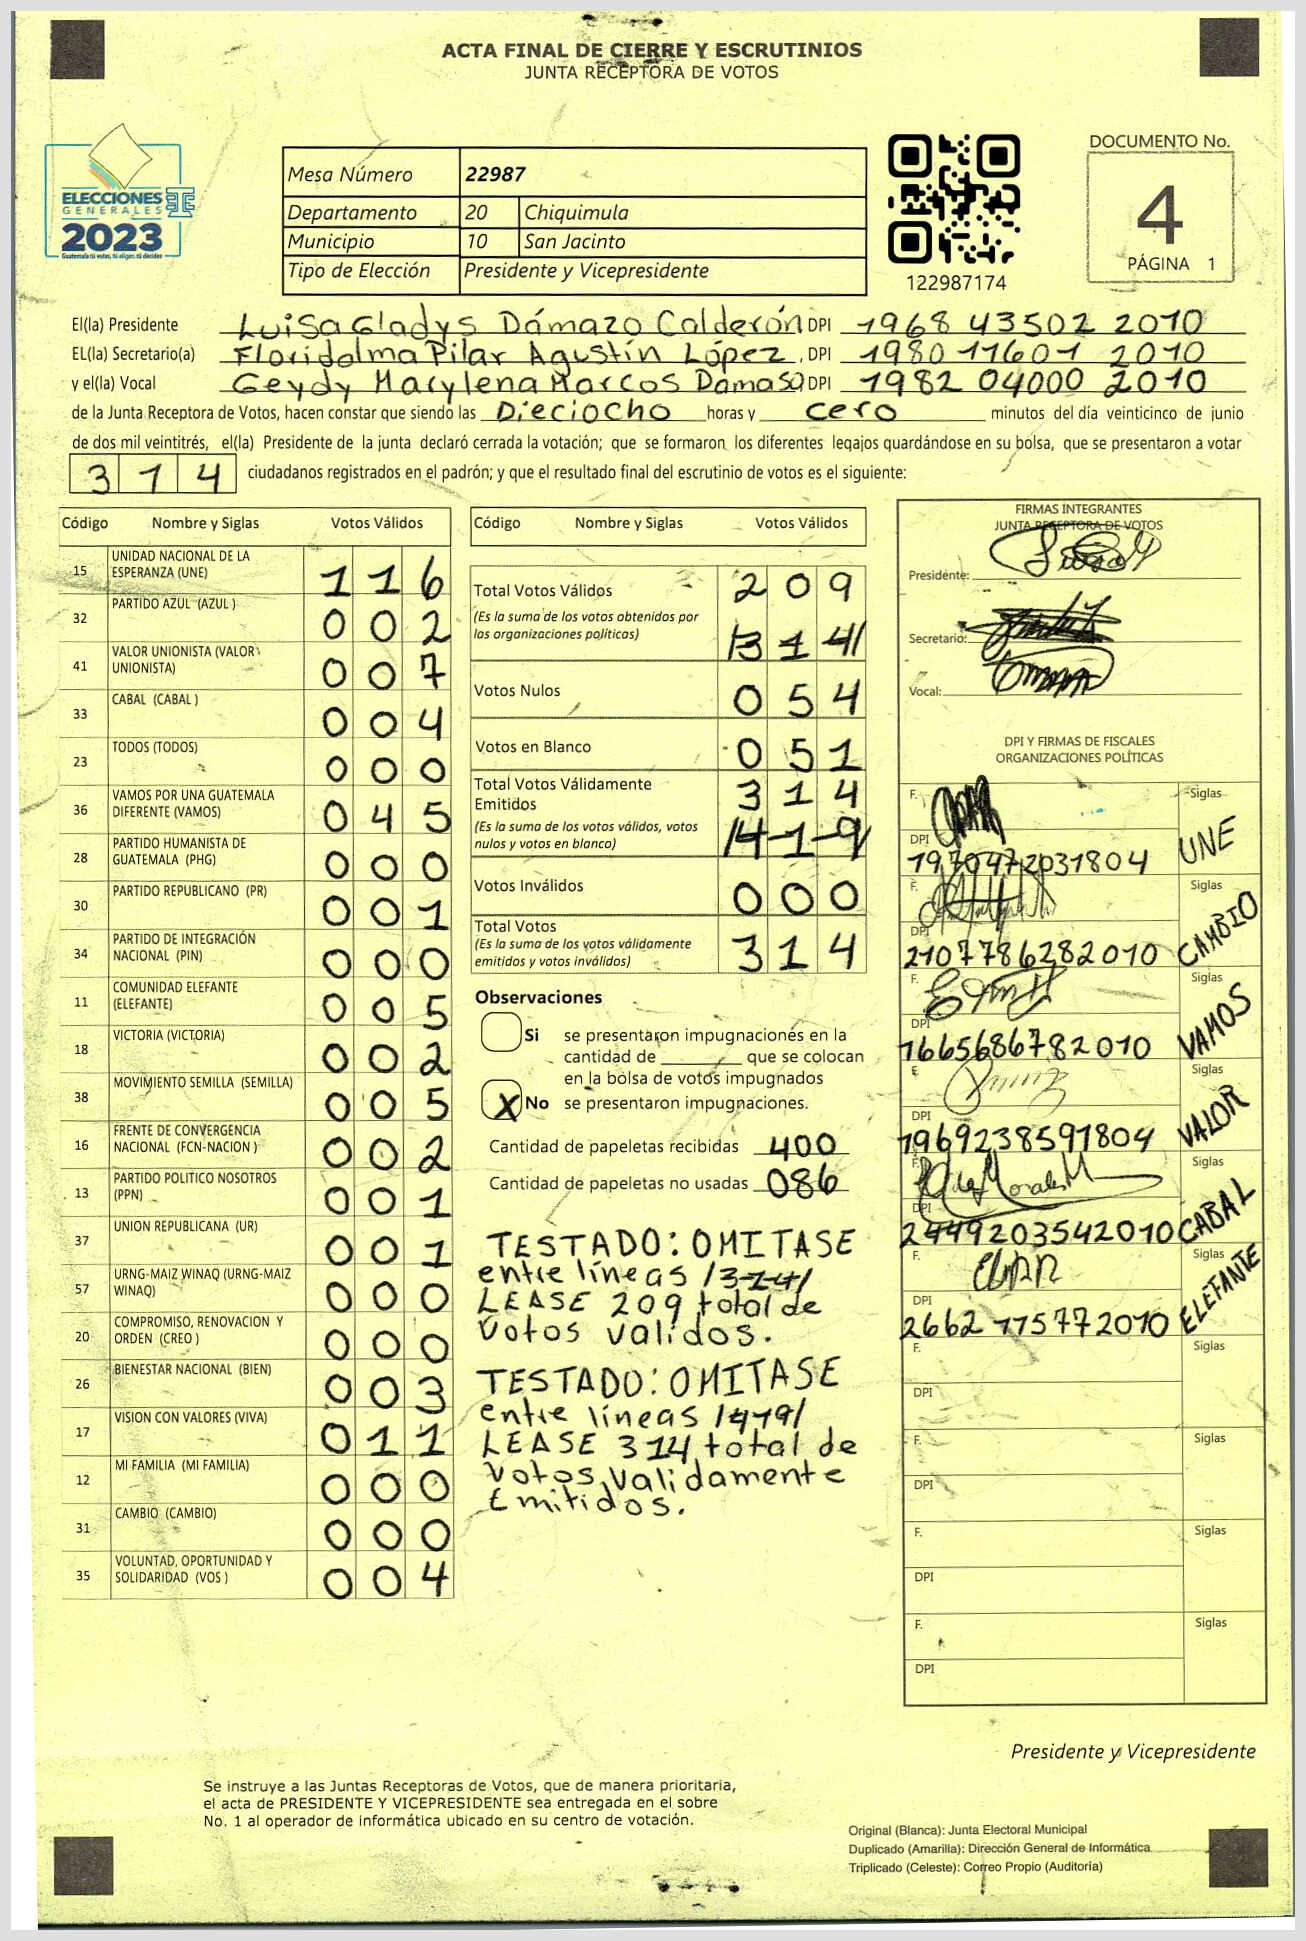 ACTA FINAL DE CIERRE Y ESCRUTINIOS
JUNTA RECEPTORA DE VOTOS
ELECCIONES
GENERALES
2023
Guatemala tú votas, tú eliges, tú decides
Mesa Número 22987
Departamento 20 Chiquimula
Municipio 10 San Jacinto
Tipo de Elección Presidente y Vicepresidente
122987174
DOCUMENTO No.
4
PÁGINA 1
El(la) Presidente Luisa Gladys Dámazo Calderón DPI 1968 43502 2010
EL(la) Secretario(a) Floridalma Pilar Agustín López, DPI 1980 11601 2010
y el(la) Vocal Geydy Marylena Marcos Damaso DPI 1982 04000 2010
de la Junta Receptora de Votos, hacen constar que siendo las Dieciocho horas y cero minutos del día veinticinco de junio
de dos mil veintitrés, el(la) Presidente de la junta declaró cerrada la votación; que se formaron los diferentes legajos guardándose en su bolsa, que se presentaron a votar
314 ciudadanos registrados en el padrón; y que el resultado final del escrutinio de votos es el siguiente:
Código Nombre y Siglas Votos Válidos
15 UNIDAD NACIONAL DE LA ESPERANZA (UNE) 116
32 PARTIDO AZUL (AZUL ) 002
41 VALOR UNIONISTA (VALOR UNIONISTA) 007
33 CABAL (CABAL ) 004
23 TODOS (TODOS) 000
36 VAMOS POR UNA GUATEMALA DIFERENTE (VAMOS) 045
28 PARTIDO HUMANISTA DE GUATEMALA (PHG) 000
30 PARTIDO REPUBLICANO (PR) 001
34 PARTIDO DE INTEGRACIÓN NACIONAL (PIN) 000
11 COMUNIDAD ELEFANTE (ELEFANTE) 005
18 VICTORIA (VICTORIA) 002
38 MOVIMIENTO SEMILLA (SEMILLA) 005
16 FRENTE DE CONVERGENCIA NACIONAL (FCN-NACION ) 002
13 PARTIDO POLITICO NOSOTROS (PPN) 001
37 UNION REPUBLICANA (UR) 001
57 URNG-MAIZ WINAQ (URNG-MAIZ WINAQ) 000
20 COMPROMISO, RENOVACION Y ORDEN (CREO ) 000
26 BIENESTAR NACIONAL (BIEN) 003
17 VISION CON VALORES (VIVA) 011
12 MI FAMILIA (MI FAMILIA) 000
31 CAMBIO (CAMBIO) 000
35 VOLUNTAD, OPORTUNIDAD Y SOLIDARIDAD (VOS ) 004
Código Nombre y Siglas Votos Válidos
Total Votos Válidos 209
(Es la suma de los votos obtenidos por
las organizaciones políticas) /314/
Votos Nulos 054
Votos en Blanco 051
Total Votos Válidamente
Emitidos 314
(Es la suma de los votos válidos, votos
nulos y votos en blanco) /419/
Votos Inválidos 000
Total Votos
(Es la suma de los votos válidamente
emitidos y votos inválidos) 314
Observaciones
Si se presentaron impugnaciones en la
cantidad de ________ que se colocan
en la bolsa de votos impugnados
X No se presentaron impugnaciones.
Cantidad de papeletas recibidas 400
Cantidad de papeletas no usadas 086
TESTADO: OMITASE
entre líneas /314/
LEASE 209 total de
votos validos.
TESTADO: OMITASE
entre líneas /419/
LEASE 314 total de
votos validamente
Emitidos.
FIRMAS INTEGRANTES
JUNTA RECEPTORA DE VOTOS
Presidente:
Secretario:
Vocal:
DPI Y FIRMAS DE FISCALES
ORGANIZACIONES POLÍTICAS
F. Siglas
DPI 1970472031804 UNE
F. Siglas
DPI 2107786282010 CAMBIO
F. Siglas
DPI 1665686782010 VAMOS
F. Siglas
DPI 1969238591804 VALOR
F. Morales M Siglas
DPI 2449203542010 CABAL
F. Siglas
DPI 2662115772010 ELEFANTE
F. Siglas
DPI
F. Siglas
DPI
F. Siglas
DPI
F. Siglas
DPI
Presidente y Vicepresidente
Se instruye a las Juntas Receptoras de Votos, que de manera prioritaria,
el acta de PRESIDENTE Y VICEPRESIDENTE sea entregada en el sobre
No. 1 al operador de informática ubicado en su centro de votación.
Original (Blanca): Junta Electoral Municipal
Duplicado (Amarilla): Dirección General de Informática
Triplicado (Celeste): Correo Propio (Auditoría)